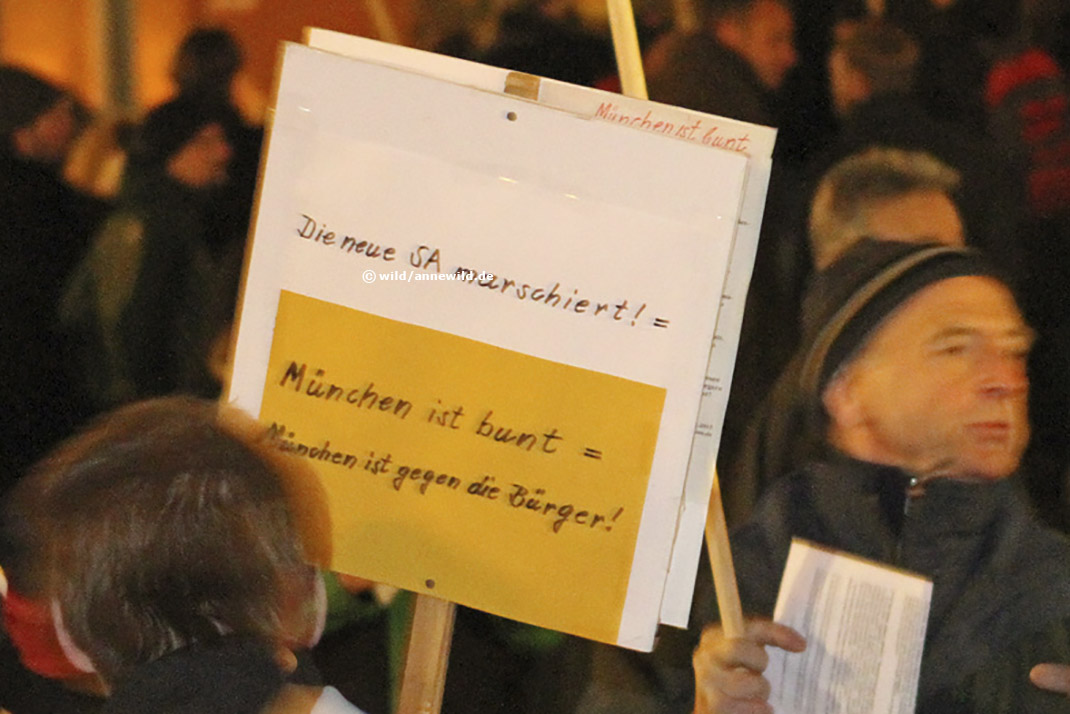 München ist bunt
Die neue SA marschiert! =
© wild/annewild.de
München ist bunt =
München ist gegen die Bürger!